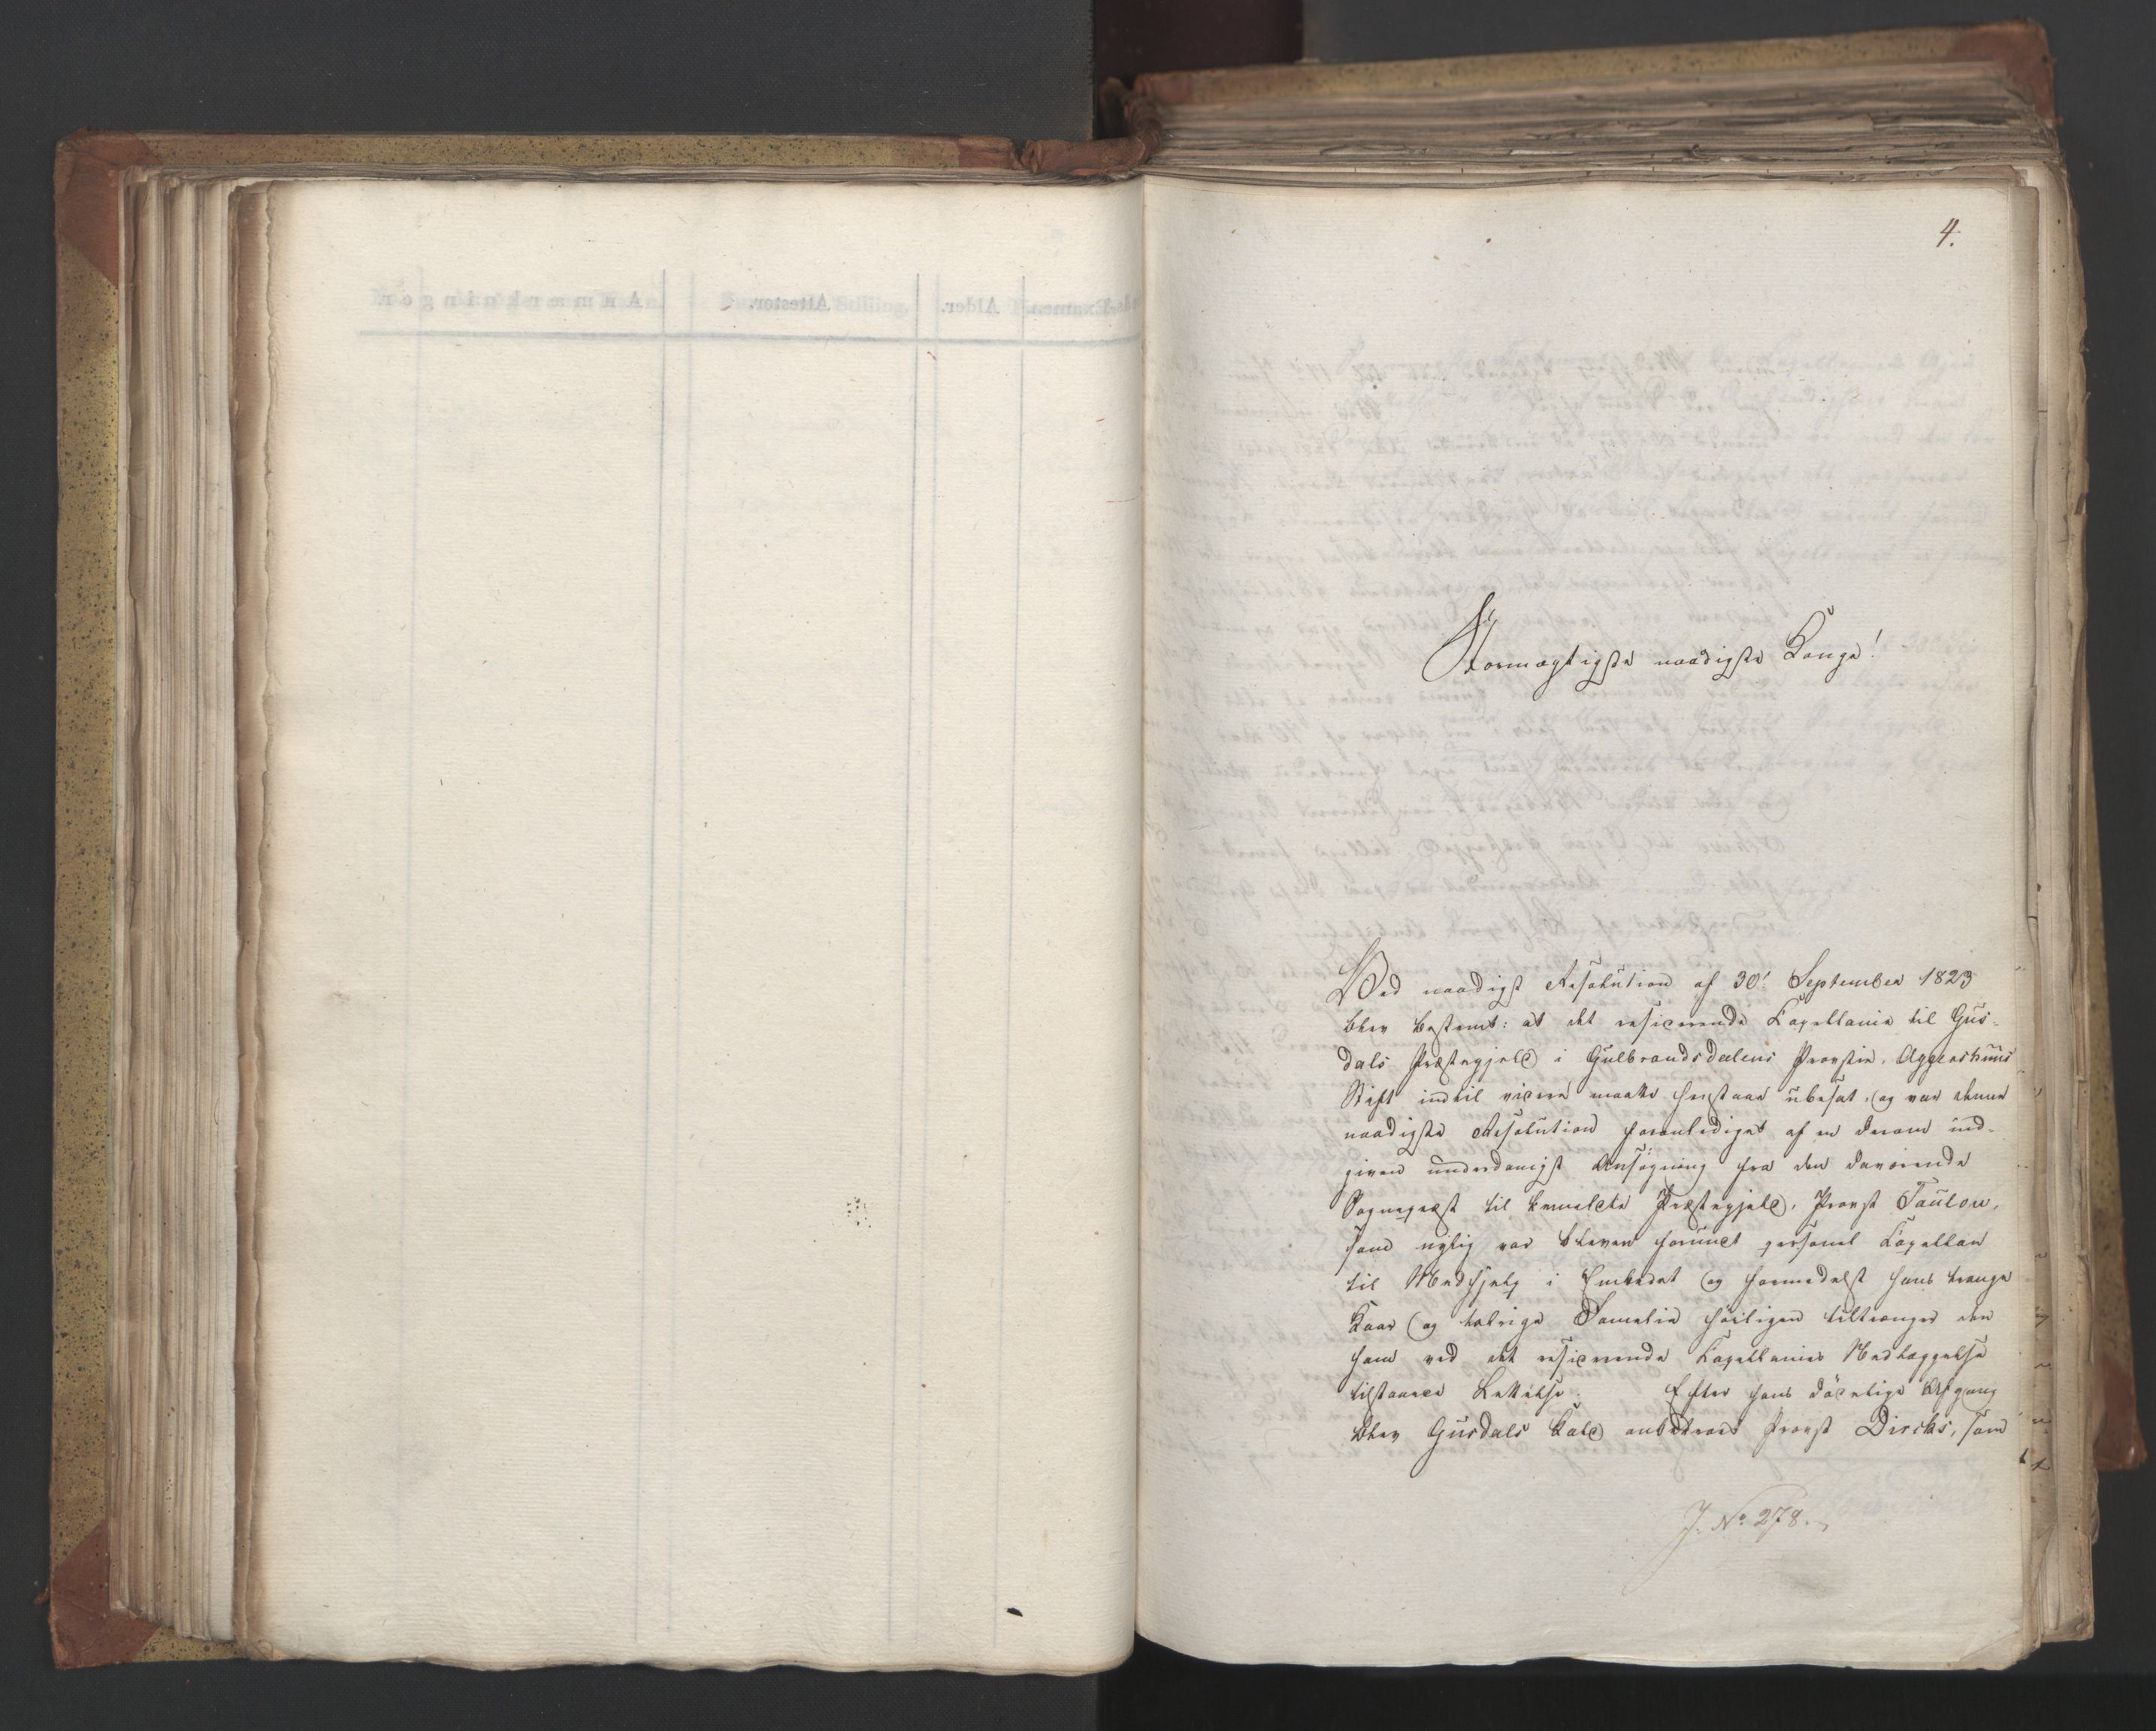 4.
Stormægtigste naadigste Konge!
Ved naadigst Resolution af 30t September 1823
blev bestemt: at det residerende Capellanie til Gus-
dals Præstegjeld i Gulbrandsdalens Provstie, Aggershuus
Stift indtil videre maatte henstaae ubesat, og var denne
naadigste Resolution foranlediget af en derom ind-
given underdanigst Ansøgning fra den daværende
Sognepræst til bemeldte Præstegjeld, Provst Taulow,
som nylig var bleven forundt personel Capellan
til Medhjelp i Embedet og formedelst hans trange
Kaar og talrige Familie høiligen tiltrænger den
ham ved det residerende Capellanies Nedlæggelse
tilstaaede Lettelse. Efter hans dødelige Afgang
blev Gusdals Kald anbetroet Provst Dircks, som
J. No 278.